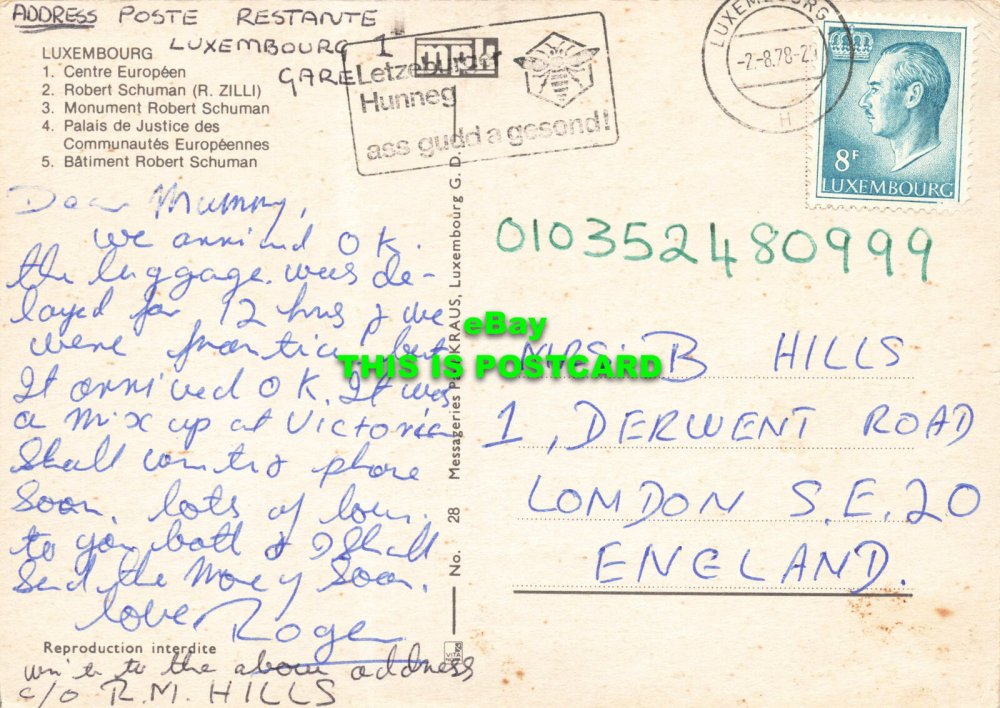 ADDRESS POSTE RESTANTE
LUXEMBOURG 1
GARE
LUXEMBOURG
1. Centre Européen
2. Robert Schuman (R. ZILLI)
3. Monument Robert Schuman
4. Palais de Justice des
Communautés Européennes
5. Bâtiment Robert Schuman
Letzeburger
Hunneg
ass gudd a gesond!
LUXEMBOURG
-2.-8.78-2
H
8F
LUXEMBOURG
Dear Mummy,
we arrived OK.
the luggage was de-
layed for 12 hrs & we
were frantic but
It arrived OK. It was
a mix up at Victoria
Shall write & phone
soon. lots of love.
to you both & I shall
send the money soon.
love Roger
Reproduction interdite
write to the above address
c/o R.M. HILLS
No. 28 Messageries P. KRAUS, Luxembourg G. D.
010352480999
MRS. B HILLS
1, DERWENT ROAD
LONDON S.E.20
ENGLAND.
eBay
THIS IS POSTCARD